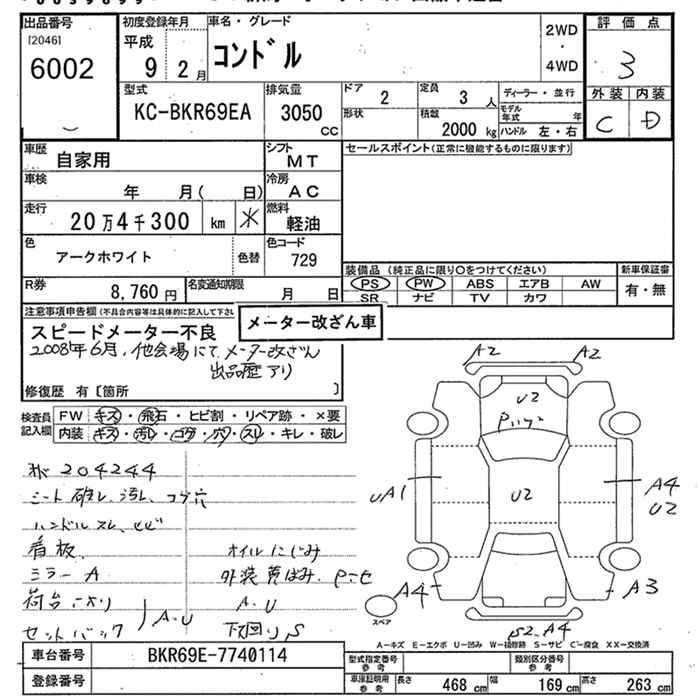 出品番号 初度登録年月 車名・グレード 2WD ・ 4WD 評価点
[2046] 平成 コンドル 3
6002 9 2月 外装 内装
型式 排気量 ドア 定員 ディーラー・並行 C D
KC-BKR69EA 3050 cc 2 3 人 モデル年式 年
形状 積載 2000 kg ハンドル 左・右
車歴 自家用 シフト MT セールスポイント(正常に機能するものに限ります)
車検 年 月( 日) 冷房 AC
走行 20万4千300 km 燃料 軽油
色 アークホワイト 色替 色コード 729
装備品 (純正品に限り○をつけてください) 新車保証書
R券 8,760円 名変通知期限 月 日 PS PW ABS エアB AW 有・無
SR ナビ TV カワ
注意事項申告欄(不具合内容等は具体的に記入して下さい
メーター改ざん車
スピードメーター不良
2008年6月、他会場にてメーター改ざん
出品歴アリ
修復歴 有〔箇所 〕
検査員記入欄 FW キズ・飛石・ヒビ割・リペア跡・×要
内装 キズ・汚レ・コゲ・穴・スレ・キレ・破レ
A2 A2
U2
204244
シート 破レ、汚レ、コゲ穴
ハンドルスレ、
U2
UA1 A4
U2
看板 オイルにじみ
ミラーA 外装黄ばみ、
A4 A3
荷台 A、U A、U
セットバック 下回りS
スペア
S2、A4
A-キズ E-エクボ U-凹み W-補修跡 S-サビ C-腐食 XX-交換済
車台番号 BKR69E-7740114 型式指定番号 参考 類別区分番号 参考
登録番号 車庫証明用 参考 長さ 468 cm 幅 169 cm 高さ 263 cm